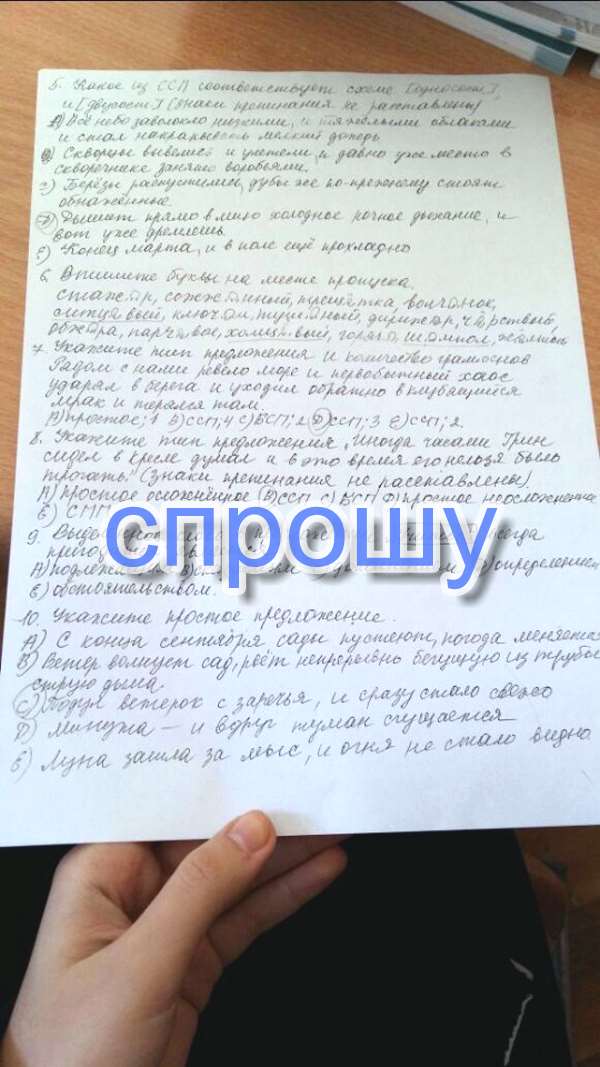 5. Какое из ССП соответствует схеме [односост.],
и [двусост.] (знаки препинания не расставлены)
А) Всё небо заволокло низкими, и тяжёлыми облаками
и стал накрапывать мелкий дождь
Скворцы вывелись и улетели, и давно уже место в
скворечнике занято воробьями.
Берёзы распустились, дубы же по-прежнему стоят
обнажённые.
Дышит прямо в лицо холодное ночное дыхание, и
вот уже дремлешь.
Е) Конец марта, и в поле ещё прохладно
6. Впишите буквы на месте пропуска.
7. Укажите тип предложения и количество грамоснов
Рядом с нами ревело море и первобытный хаос
ударял в берега и уходил обратно в клубящийся
мрак и терялся там.
А) простое; 1 В) ССП; 4 С) БСП; 2 D) ССП; 3 Е) ССП; 2.
8. Укажите тип предложения „Иногда часами Грин
сидел в кресле думал и в это время его нельзя было
трогать." (Знаки препинания не расставлены).
А) простое осложнённое В) ССП С) БСП D) простое неосложненное
Е) СПП
спрошу
9.
Е) обстоятельством.
10. Укажите простое предложение.
А) С конца сентября сады пустеют, погода меняется
В) Ветер волнует сад, рвёт непрерывно бегущую из трубы
струю дыма.
С) Подул ветерок с заречья, и сразу стало свежо
D) Минута – и вдруг туман сгущается
Е) Луна зашла за мыс, и огня не стало видно